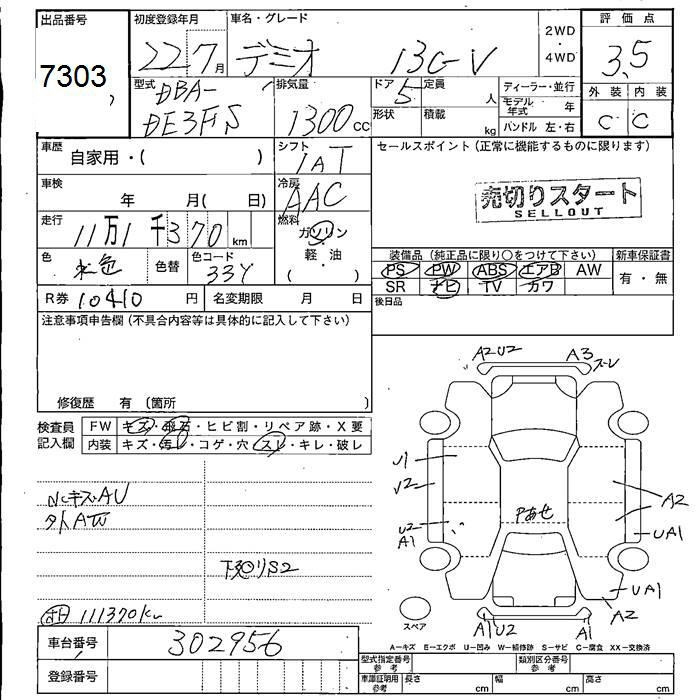 出品番号
7303
初度登録年月
22 7月
車名・グレード
デミオ 13G-V
2WD
・
4WD
評価点
3.5
外装 内装
C C
型式
DBA-
DE3FS
排気量
1300cc
ドア 5
定員 人
形状
積載 kg
ディーラー・並行
モデル年式 年
ハンドル 左・右
車歴
自家用・( )
シフト
IAT
セールスポイント(正常に機能するものに限ります)
売切りスタート
SELLOUT
車検
年 月( 日)
冷房
AAC
走行
11万1千370km
燃料
ガソリン
軽・油
( )
色
水色
色替
色コード
33Y
装備品(純正品に限り〇をつけて下さい)
新車保証書
PS PW ABS エアB AW
SR ナビ TV カワ
有・無
R券 10410円
名変期限 月 日
後日品
注意事項申告欄(不具合内容等は具体的に記入して下さい)
修復歴 有(箇所 )
検査員
記入欄
FW キズ・飛石・ヒビ割・リペア跡・X要
内装 キズ・汚れ・コゲ・穴・スレ・キレ・破レ
キズAU
外AW
下廻リS2
111370km
A2U2
A3
スーレ
U1
U2
U2
A1
Pあせ
A2
UA1
UA1
A2
A1U2
A1
スペア
A-キズ E-エクボ U-凹み W-補修跡 S-サビ C-腐食 XX-交換済
車台番号
302956
登録番号
型式指定番号
参考
類別区分番号
参考
車庫証明用
参考
長さ cm
幅 cm
高さ cm